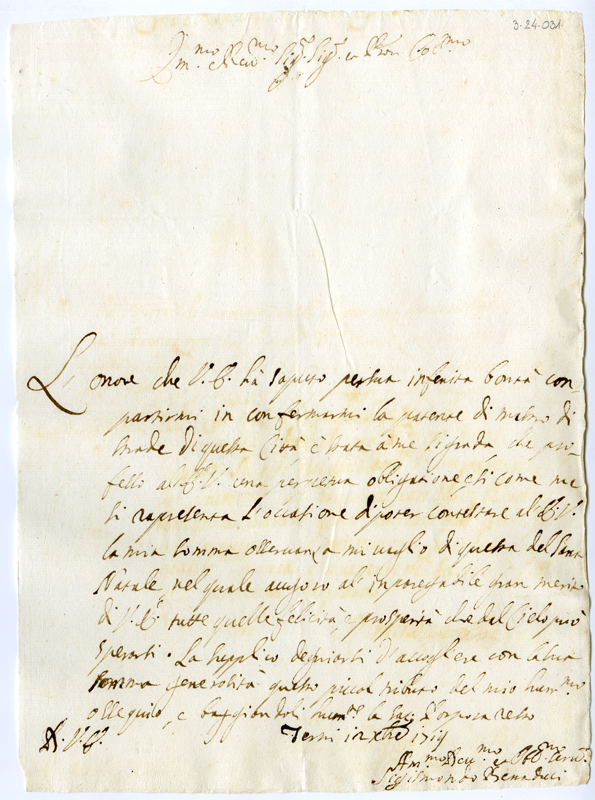 3-24-031
Em.mo e Rev.mo Sig.r Sig.r e P.ron Col.mo
L'onore che V.E. hà saputo per sua infinita bontà com-
partirmi in confermarmi la patente di mastro di
strade di questa Città è stata à me sì grada, che pro-
fesso all'E.V. una perpetua obligatione, e sì come me
si rapresenta l'occasione di poter contestare al E.V.
la mia somma osservanza mi vaglio di questa del Santo
Natale, nel quale auguro al inparegiabile gran merito
di V.E. tutte quelle felicità, e prosperità che dal Cielo può
sperarsi. La supplico degniarsi d'accogliere con la sua
somma generosità questo piccol tributo del mio hum.mo
ossequio, e baggiandoli hum.te la Sag. Porpora resto
D. V.E. Terni 12 Xbre 1719
Hum.mo Dev.mo et Obl.mo Serv.e
Sigismondo Benaduci